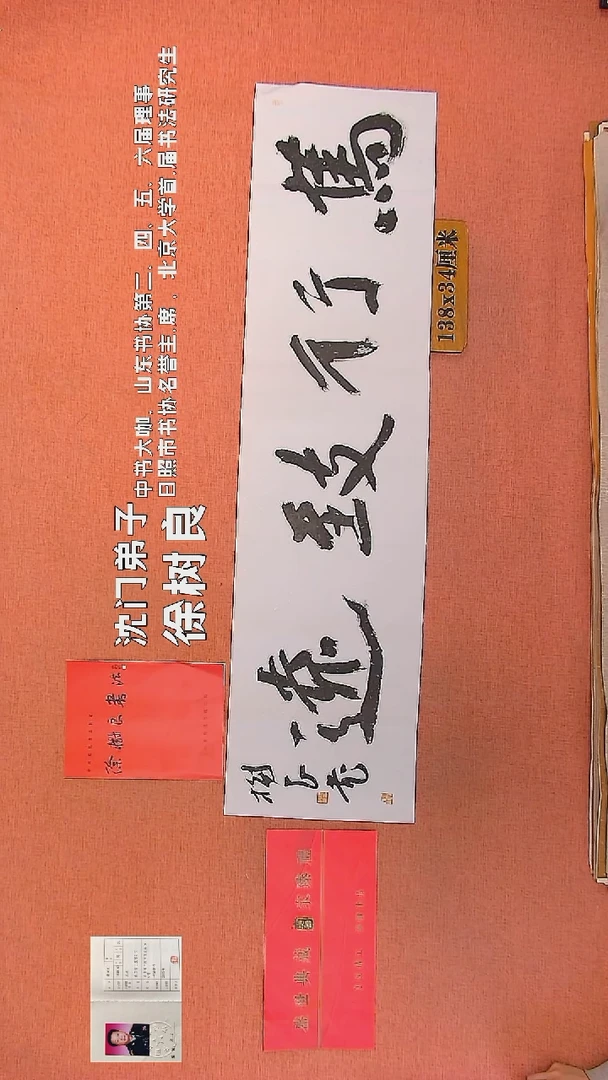 沈门弟子
徐树良
中书大咖、山东书协第二、四、五、六届理事
日照市书协名誉主席、北京大学首届书法研究生
篤行致遠
樹良书
138x34厘米
徐樹良書法